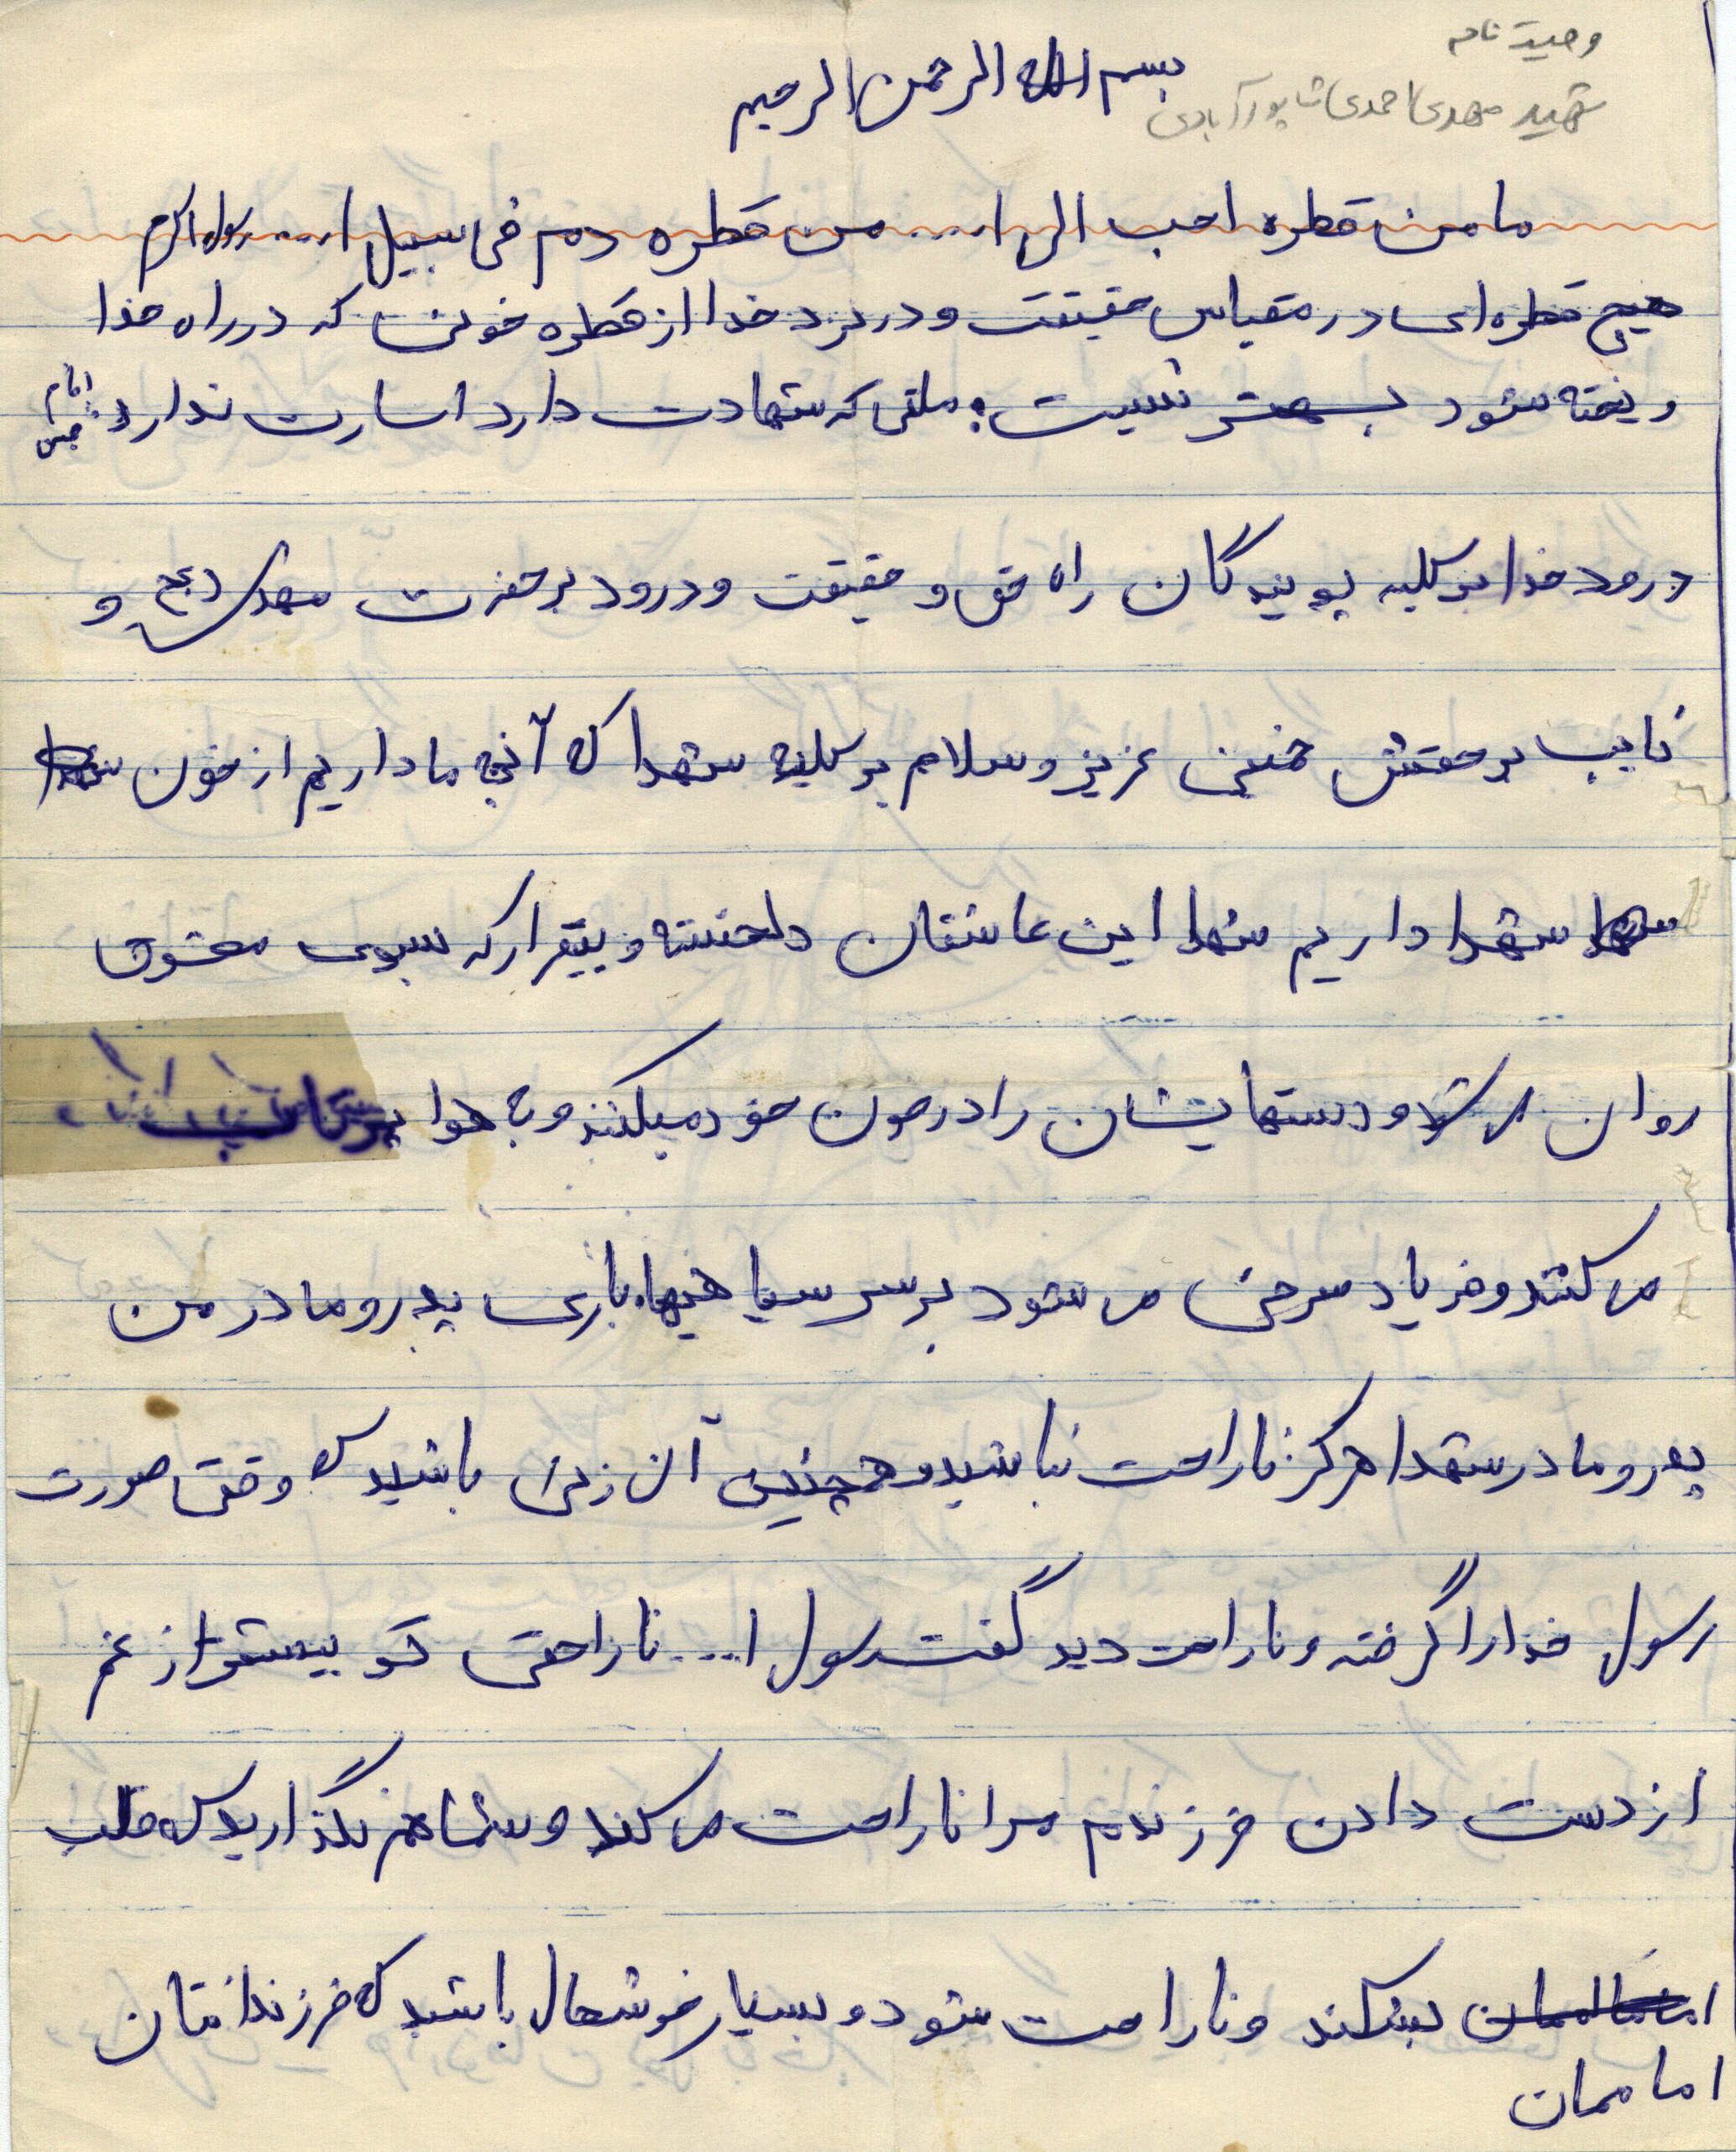 وصیت نامه
شهید مهدی احمدی شاپورآبادی
بسم الله الرحمن الرحیم
ما من قطره احب الی ا.... من قطره دم فی سبیل ا.... رسول اکرم
هیچ قطره ای در مقیاس حقیقت و در نزد خدا از قطره خونی که در راه خدا
ریخته شود بهتر نیست؛ ملتی که شهادت دارد اسارت ندارد امام خمینی
درود خدا بر کلیه پویندگان راه حق و حقیقت و درود بر حضرت مهدی (عج) و
نایب برحقش خمینی عزیز و سلام بر کلیه شهدا که آنچه ما داریم از خون
شهدا داریم شهدا این عاشقان دلخسته و بیقرار که بسوی معشوق
روان و دستهایشان را در خون خود میکنند و به هوا پرتاب
می کنند و فریاد سرخی می شود بر سر سیاهیها. باری پدر و مادر من
پدر و مادر شهدا هرگز ناراحت نباشید و همچنین آن زنی باشید که وقتی صورت
رسول خدا را گرفته و ناراحت دید گفت رسول ا.... ناراحتی تو بیشتر از غم
از دست دادن فرزندم مرا ناراحت می کند و شما هم نگذارید که قلب
بشکند و ناراحت شود و بسیار خوشحال باشید که فرزندانتان
اماممان